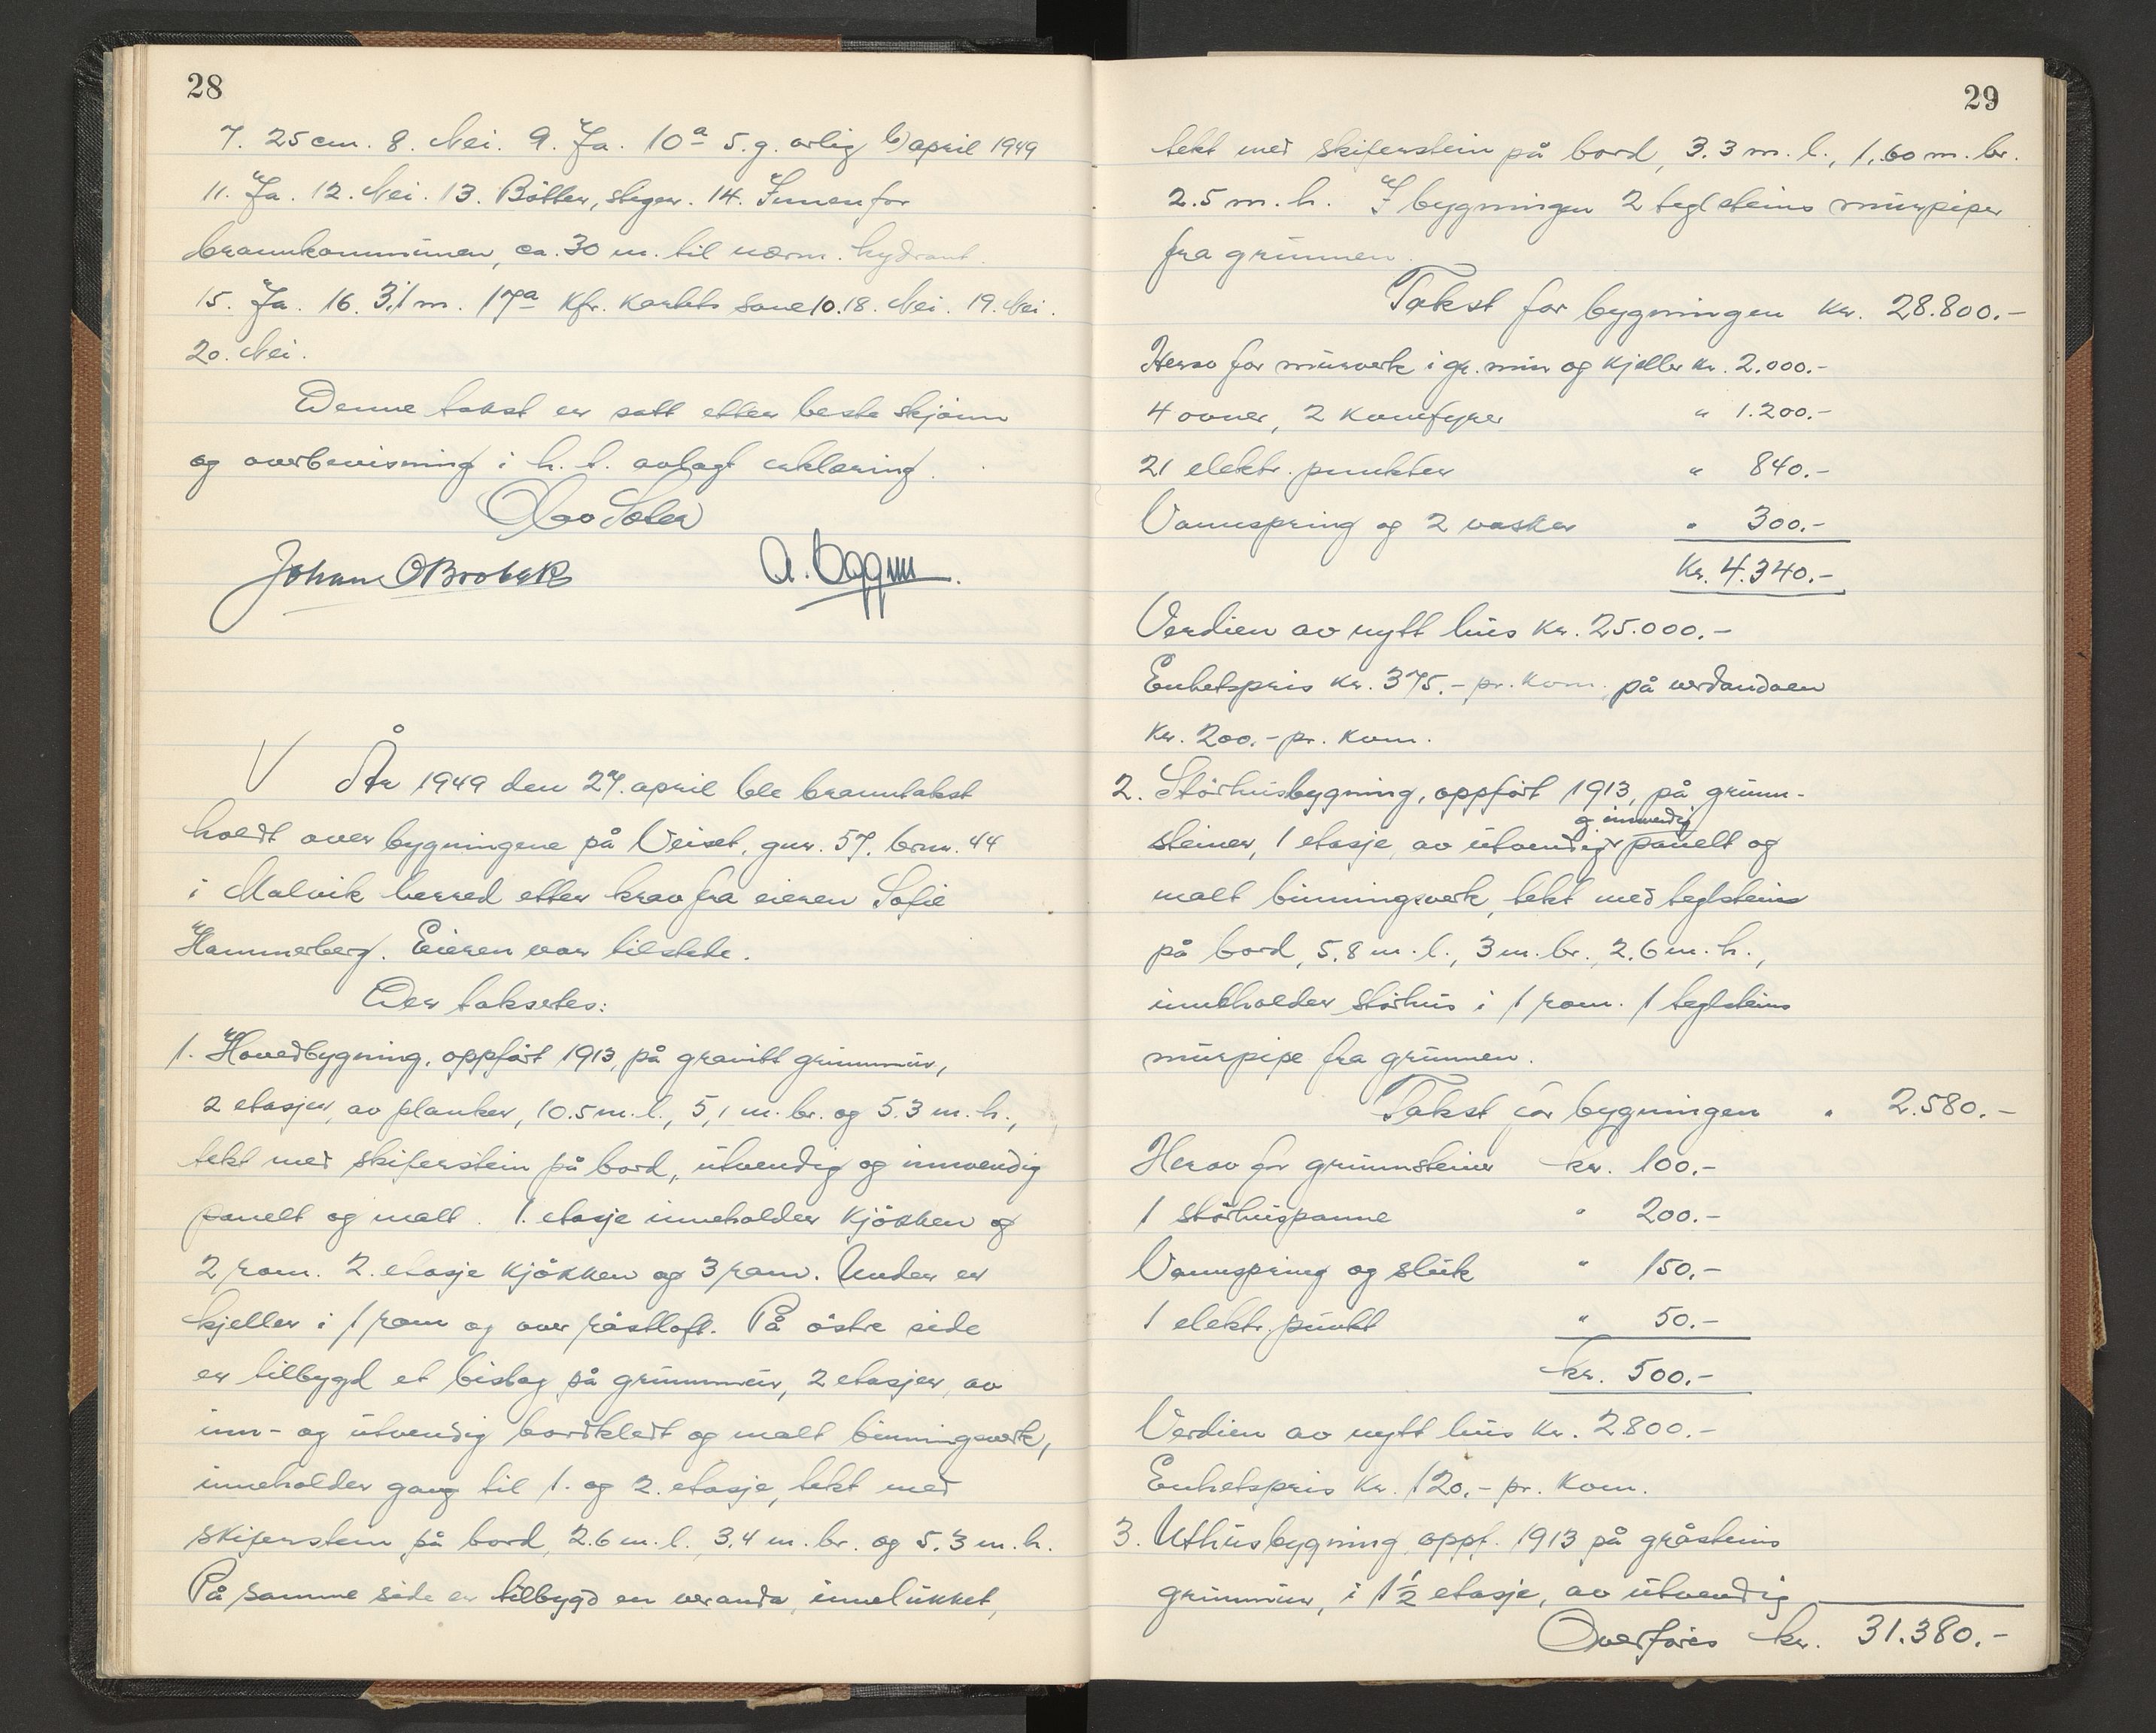 28
7. 25 cm. 8. Nei. 9. Ja. 10a 5. g. årlig b) april 1949
11. Ja. 12. Nei. 13. Bøtter, stiger. 14. Innenfor
brannkommunen, ca. 30 m. til nærm. hydrant.
15. Ja. 16. 3,1 m. 17a Kfr. kartets sone 10. 18. Nei. 19. Nei.
20. Nei.
Denne takst er satt etter beste skjønn
og overbevisning i h. t. avlagt erklæring.
Johan O Brobak
År 1949 den 27. april ble branntakst
holdt over bygningene på Veiset, gnr. 57, brnr. 44
i Malvik herred etter krav fra eieren Sofie
Hammerberg. Eieren var tilstede.
Der taksertes:
1. Hovedbygning, oppført 1913, på granitt grunnmur,
2 etasjer, av planker, 10.5 m. l., 5,1 m. br. og 5.3 m. h.,
tekt med skiferstein på bord, utvendig og innvendig
panelt og malt. 1. etasje inneholder kjøkken og
2 rom. 2. etasje kjøkken og 3 rom. Under er
kjeller i 1 rom og over råstloft. På østre side
er tilbygd et bislag på grunnmur, 2 etasjer, av
inn- og utvendig bordkledt og malt binningsverk,
inneholder gang til 1. og 2. etasje, tekt med
skiferstein på bord, 2.6 m. l. 3,4 m. br. og 5.3 m. h.
På samme side er tilbygd en veranda, innelukket,
29
tekt med skiferstein på bord, 3.3 m. l., 1.60 m. br.
2.5 m. h. I bygningen 2 teglsteins murpiper
fra grunnen.
Takst for bygningen kr. 28.800.-
Herav for murverk i gr. mur og kjeller kr. 2.000.-
4 ovner, 2 komfyrer " 1.200.-
21 elektr. punkter " 840.-
Vannspring og 2 vasker " 300.-
Kr. 4.340.-
Verdien av nytt hus kr. 25.000.-
Enhetspris kr. 375.- pr. kvm. på verandaen
kr. 200.- pr. kvm.
2. Størhusbygning, oppført 1913, på grunn-
og innvendig
steiner, 1 etasje, av utvendig panelt og
malt binningsverk, tekt med teglsteins
på bord, 5.8 m. l., 3 m. br., 2.6 m. h.,
inneholder størhus i 1 rom. 1 teglsteins
murpipe fra grunnen.
Takst for bygningen " 2.580.-
Herav for grunnsteiner kr. 100.-
1 størhuspanne " 200.-
Vannspring og sluk " 150.-
1 elektr. punkt " 50.-
kr. 500.-
Verdien av nytt hus kr. 2800.-
Enhetspris kr. 120.- pr. kvm.
3. Uthusbygning, oppf. 1913 på gråsteins
grunnmur, i 1 1/2 etasje, av utvendig
Overføres kr. 31.380.-